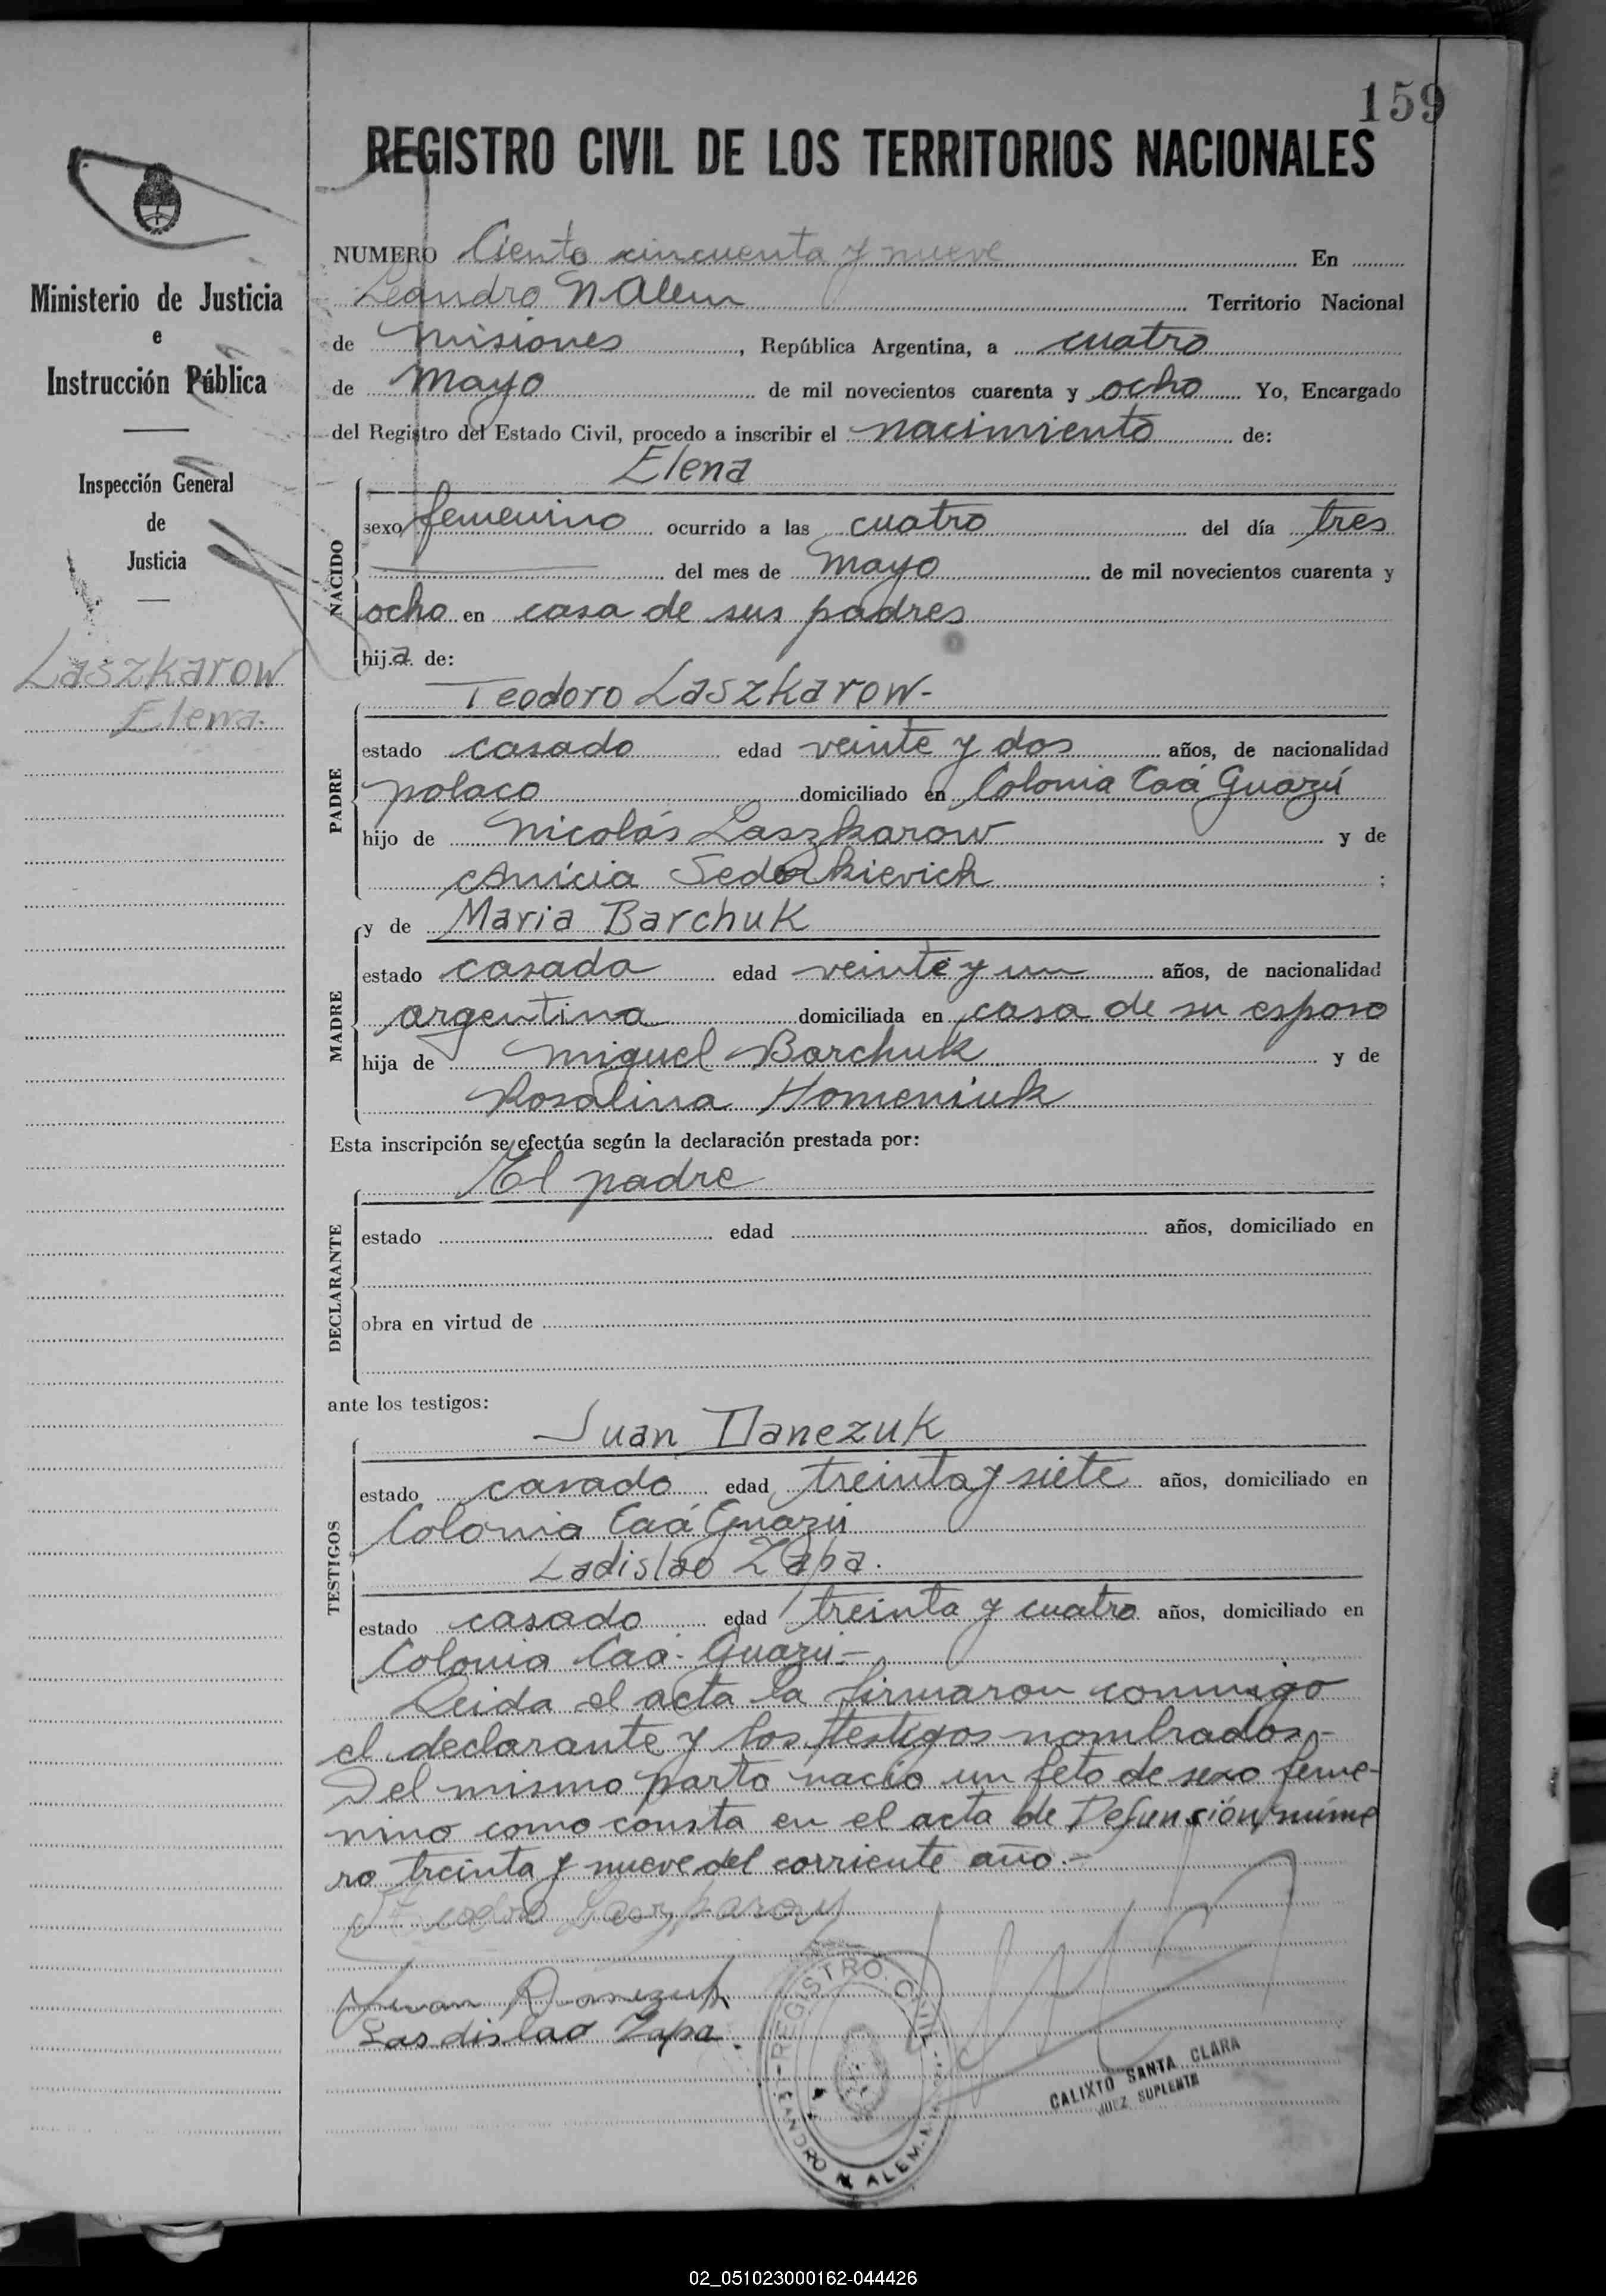 159
REGISTRO CIVIL DE LOS TERRITORIOS NACIONALES
Ministerio de Justicia
e
Instrucción Pública
Inspección General
de
Justicia
Laszkarow
Elena.
NUMERO Ciento cincuenta y nueve En
Leandro N Alem Territorio Nacional
de Misiones, República Argentina, a cuatro
de Mayo de mil novecientos cuarenta y ocho Yo, Encargado
del Registro del Estado Civil, procedo a inscribir el nacimiento de:
Elena
NACIDO
sexo femenino ocurrido a las cuatro del día tres
del mes de Mayo de mil novecientos cuarenta y
ocho en casa de sus padres
hija de:
Teodoro Laszkarow-
PADRE
estado casado edad veinte y dos años, de nacionalidad
polaco domiciliado en Colonia Caá Guazú
hijo de Nicolás Laszkarow y de
Anicia Sederkievich ;
y de Maria Barchuk
MADRE
estado casada edad veinte y un años, de nacionalidad
argentina domiciliada en casa de su esposo
hija de Miguel Barchuk y de
Rosalina Homeniuk
Esta inscripción se efectúa según la declaración prestada por:
El padre
DECLARANTE
estado edad años, domiciliado en
obra en virtud de
ante los testigos:
Juan Danezuk
TESTIGOS
estado casado edad treinta y siete años, domiciliado en
Colonia Caá Guazú
Ladislao Zapa.
estado casado edad treinta y cuatro años, domiciliado en
Colonia Caá-Guazú-
Leida el acta la firmaron conmigo
el declarante y los testigos nombrados-
Del mismo parto nació un feto de sexo feme-
nino como consta en el acta de Defunción núme
ro treinta y nueve del corriente año.-
Juan Danezuk
Lasdislao Zapa.
REGISTRO CIVIL
LEANDRO N. ALEM
CALIXTO SANTA CLARA
JUEZ SUPLENTE
02_051023000162-044426